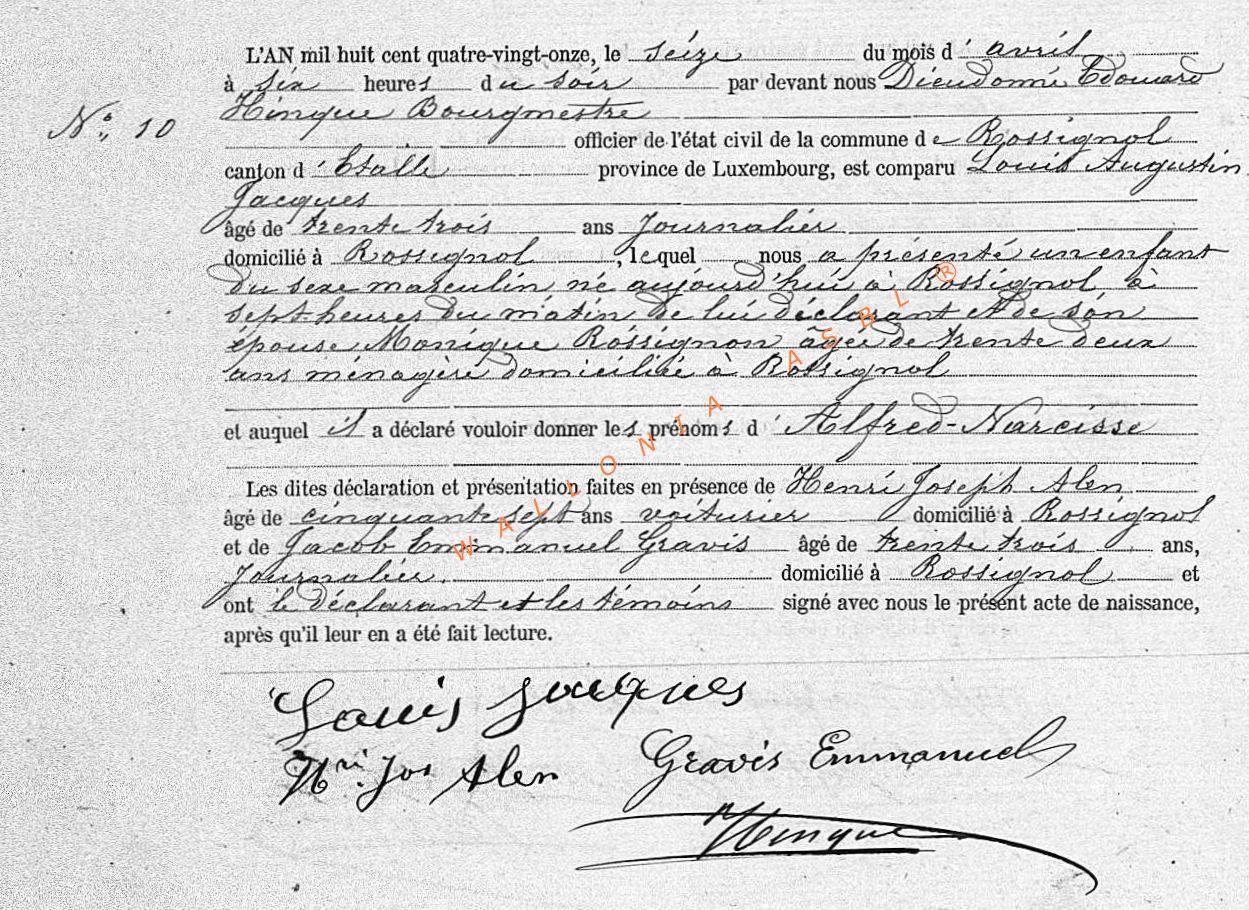 L'AN mil huit cent quatre-vingt-onze, le seize du mois d'avril
à six heures du soir par devant nous Dieudonné Edouard
Hinque Bourgmestre
N° 10
officier de l'état civil de la commune de Rossignol
canton d'Etalle province de Luxembourg, est comparu Louis Augustin
Jacques
âgé de trente trois ans Journalier
domicilié à Rossignol, lequel nous a présenté un enfant
du sexe masculin né aujourd'hui à Rossignol à
sept heures du matin de lui déclarant et de son
épouse Monique Rossignon âgée de trente deux
ans ménagère domiciliée à Rossignol
et auquel il a déclaré vouloir donner les prénoms d'Alfred-Narcisse
Les dites déclaration et présentation faites en présence de Henri Joseph Alen
âgé de cinquante sept ans voiturier domicilié à Rossignol
et de Jacob Emmanuel Gravis âgé de trente trois ans,
Journalier domicilié à Rossignol et
ont le déclarant et les témoins signé avec nous le présent acte de naissance,
après qu'il leur en a été fait lecture.
Louis Jacques
Hri Jos Alen Gravis Emmanuel
Hinque
WALLONIA ASBL ®